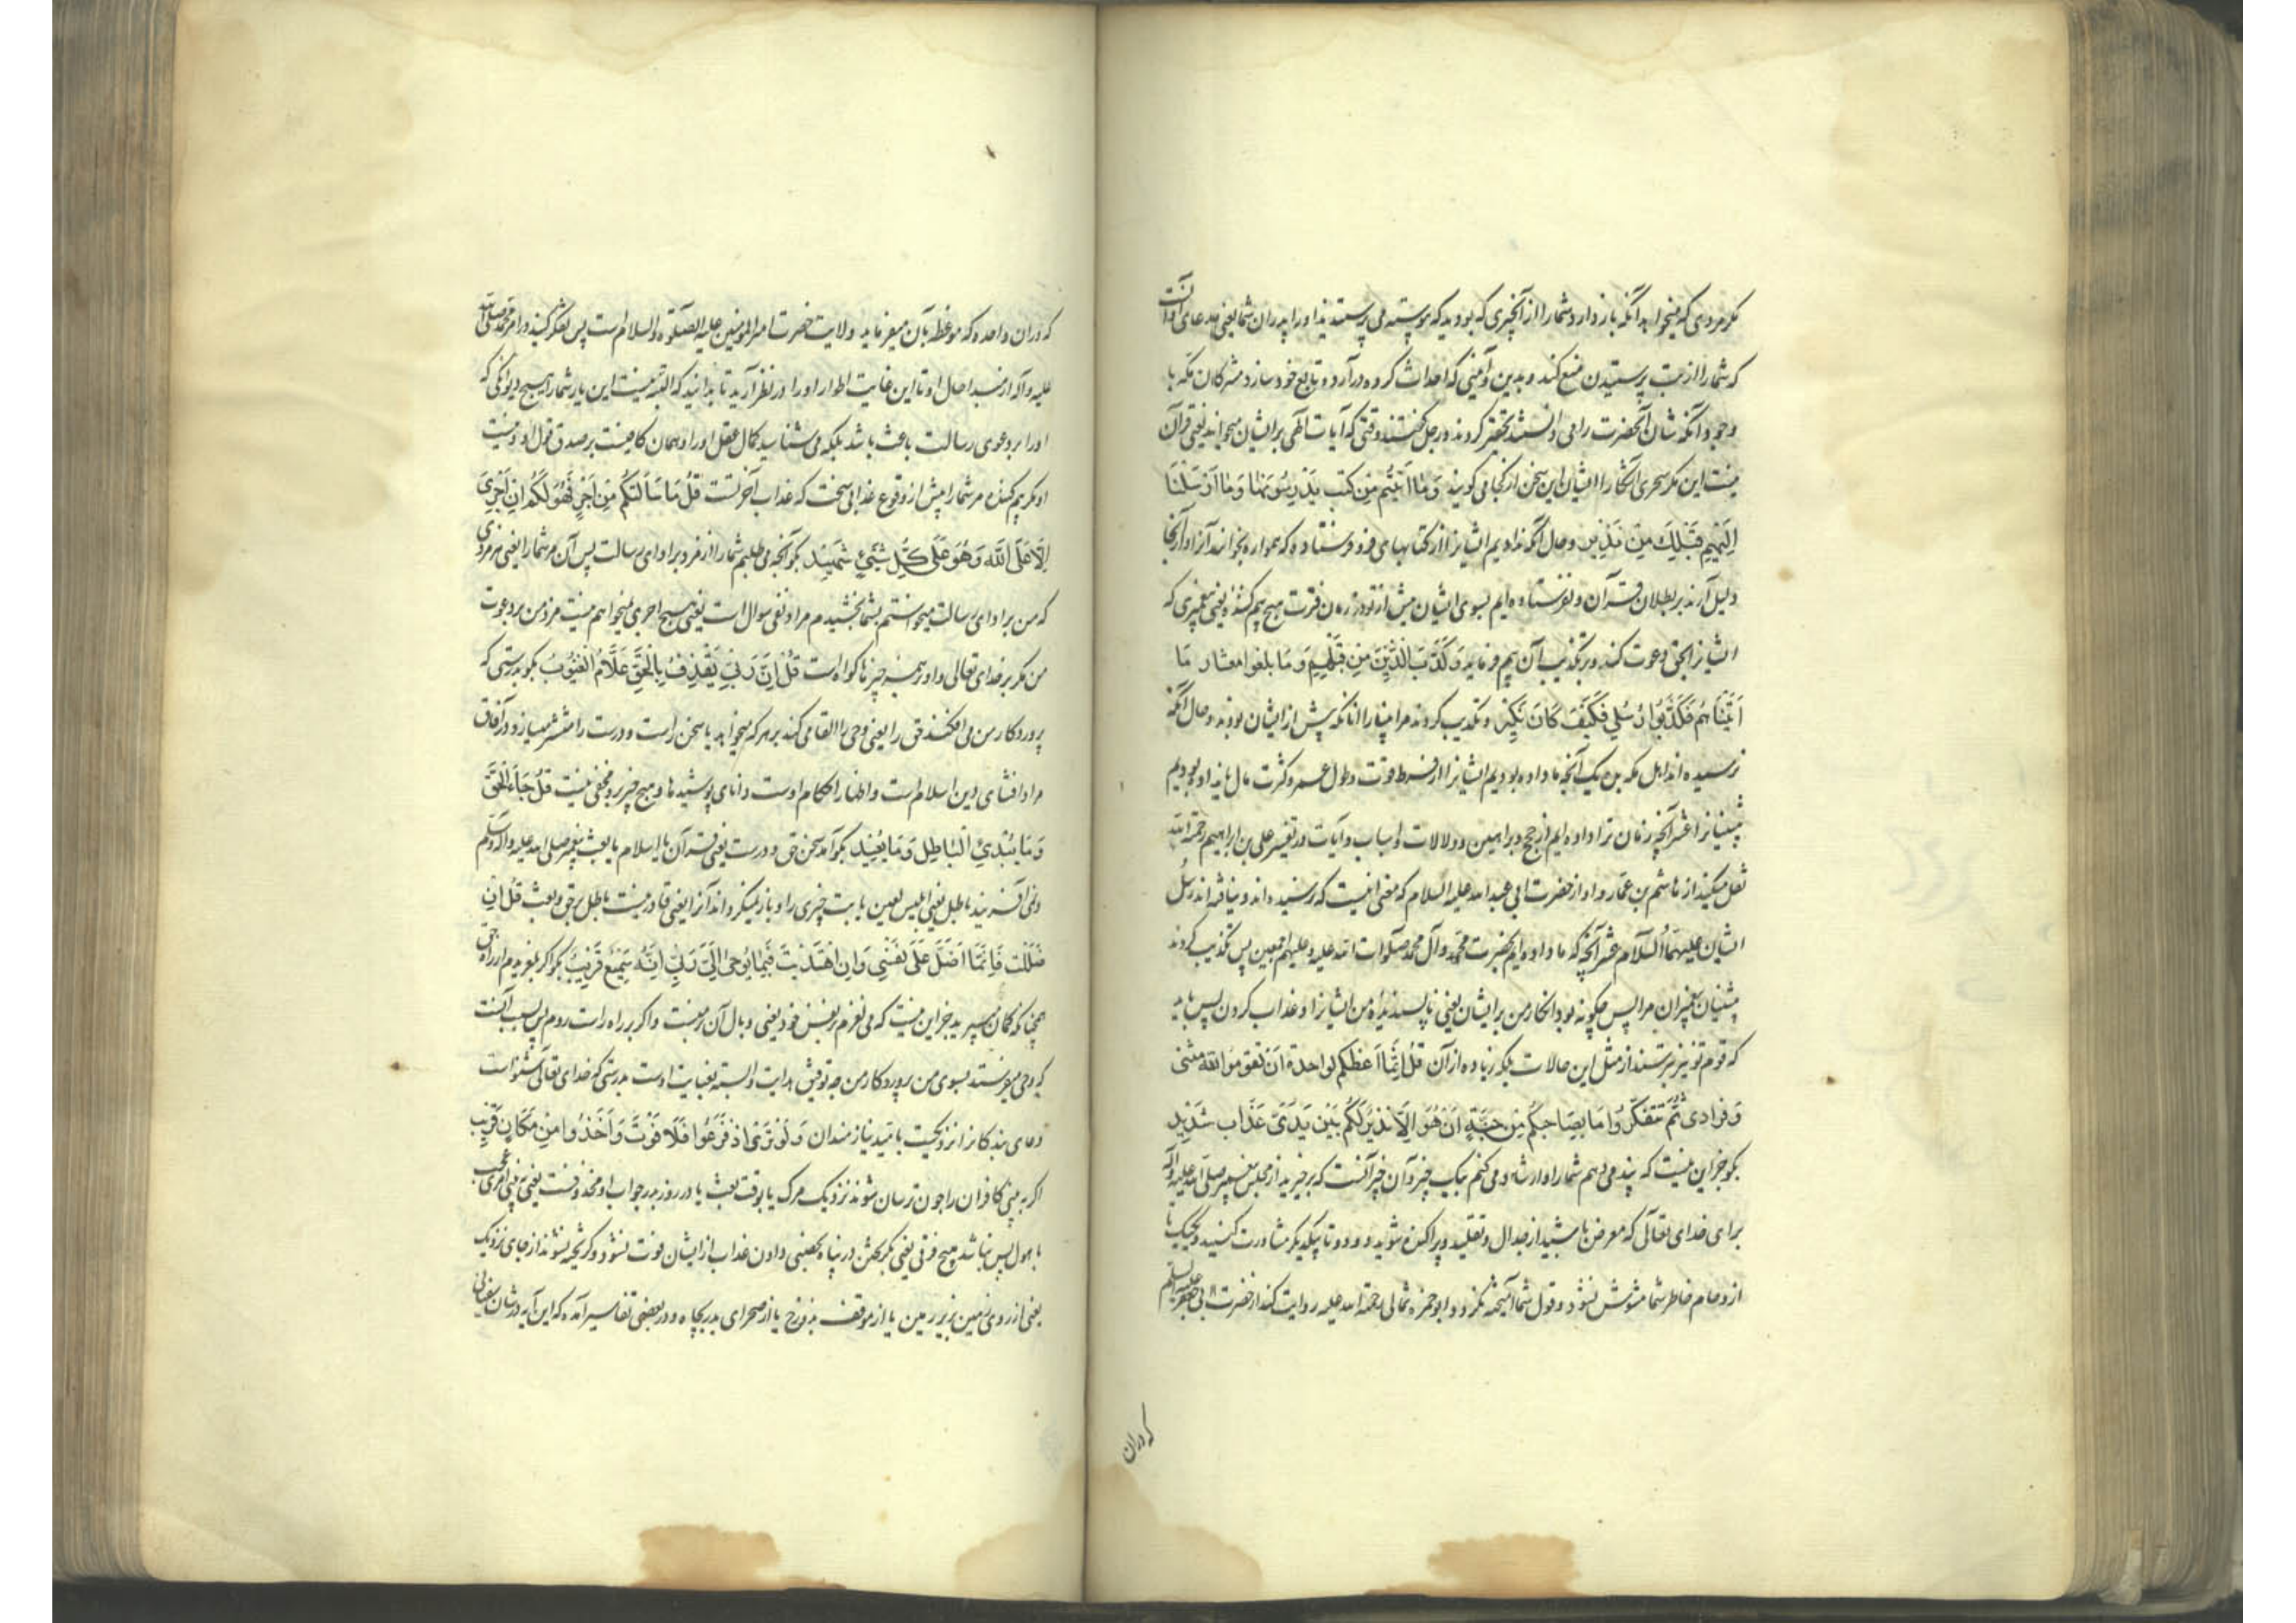 مگر مردی که میخواهد آنکه باز دارد شما را از آنچیزی که بودید که پیوسته می پرستیدند اورا پدران شما یعنی مدعای او آنست
که شما را از بت پرستیدن منع کند و بدین و آئینی که احداث کرده درآرد و تابع خود سازد مشرکان مکه با
وجود آنکه شان آنحضرت را می دانستند تحقیر کردند و رجل گفتند وقتی که آیات آلهی بر ایشان میخواند یعنی قرآن
نیست این مگر سحری آشکارا ایشان این سخن از کجا می کویند وَمَا آتَیْنٰهُمْ مِنْ کُتُبٍ یَدْرُسُونَهَا وَمَا اَرْسَلْنَا
اِلَیْهِمْ قَبْلَکَ مِنْ نَذِیرٍ و حال آنکه نداده ایم ایشانرا از کتابهای فرو فرستاده که همواره بخوانند آنرا و از آنجا
دلیل آرند بر بطلان قرآن و نفرستاده ایم بسوی ایشان پیش از تو در زمان فترت هیچ بیم کننده یعنی پیغمبری که
ایشانرا بحق دعوت کند و بر تکذیب آن بیم فرماید وَکَذَّبَ الَّذِینَ مِنْ قَبْلِهِمْ وَمَا بَلَغُوا مِعْشَارَ مَا
آتَیْنَاهُمْ فَکَذَّبُوا رُسُلِی فَکَیْفَ کَانَ نَکِیرِ و تکذیب کردند مر انبیا را آنانکه پیش از ایشان بودند و حال آنکه
نرسیده اند اهل مکه بده یک آنچه ما داده بودیم ایشانرا از فرط قوت و طول عمر و کثرت مال یا نداده بودیم
پیشینیانرا عشر آنچه در زمان ترا داده ایم از حجج و براهین و دلالات و اسباب و آیات و در تفسیر علی بن ابراهیم رحمة الله
نقل میکند از هاشم بن عمار و او از حضرت ابی عبد الله علیه السلام که معنی اینست که نرسیده اند و نیافته اند رسُل
ایشان علیهما السَّلام عشر آنچه که ما داده ایم بحضرت محمد و آل محمد صلوات الله علیه و علیهم اجمعین پس تکذیب کردند
پیشینیان پیغمبران مرا پس چکونه بود انکار من بر ایشان یعنی ناپسندیدن من ایشانرا و عذاب کردن پس باید
که قوم تو نیز بترسند از مثل این حالات بلکه زیاده از آن قُلْ اِنَّمَا اَعِظُکُمْ بِوَاحِدَةٍ اَنْ تَقُومُوا لِلّٰهِ مَثْنٰی
وَفُرَادٰی ثُمَّ تَتَفَکَّرُوا مَا بِصَاحِبِکُمْ مِنْ جِنَّةٍ اِنْ هُوَ اِلَّا نَذِیرٌ لَکُمْ بَیْنَ یَدَیْ عَذَابٍ شَدِیدٍ
بکو جز این نیست که پند می دهم شما را و ارشاد می کنم بیک چیز و آن چیز آنست که برخیزید از مجلس پیغمبر صلی الله علیه وآله
برای خدای تعالی که معرض باشید از جدال و تقلید و پراکنده شوید دو دو تا بیکدیکر مشاورت کنید و یکیک تا
از دحام خاطر شما مشوش نشود و قول شما آمیخته نکردد و ابو حمزه ثمالی رحمة الله علیه روایت کند از حضرت ابی جعفر علیه السلم
که دران
که دران واحده که موعظه بآن میفرماید ولایت حضرت امیرالمؤمنین علیه الصلوة والسلام است پس تفکر کنید در امر محمد صلی الله
علیه وآله از مبدا حال او تا این غایت اطوار او را در نظر آرید تا بدانید که البته نیست این یار شما را هیچ دیوانکی که
او را بر دعوی رسالت باعث باشد بلکه می شناسید کمال عقل او را و همان کافیست بر صدق قول او و نیست
او مکر بیم کننده مر شما را پیش از وقوع عذابی سخت که عذاب آخرتست قُلْ مَا سَاَلْتُکُمْ مِنْ اَجْرٍ فَهُوَ لَکُمْ اِنْ اَجْرِیَ
اِلَّا عَلَی اللّٰهِ وَهُوَ عَلٰی کُلِّ شَیْءٍ شَهِیدٌ بکو آنچه می طلبم شما را از مزد بر ادای رسالت پس آن مر شما را یعنی هر مزدی
که من بر ادای رسالت میخواستم بشما بخشیدم مراد نفی سوال است یعنی هیچ اجری نمیخواهم نیست مزد من بر دعوت
من مکر بر خدای تعالی و او بر همه چیزها کواه است قُلْ اِنَّ رَبِّی یَقْذِفُ بِالْحَقِّ عَلَّامُ الْغُیُوبِ بکو بدرستی که
پروردکار من می افکند حق را یعنی وحی را القا می کند بر هر که میخواهد یا سخن راست و درست را منتشر میسازد در آفاق
مراد افشای دین اسلام است و اظهار احکام اوست دانای پوشیدها و هیچ چیز برو مخفی نیست قُلْ جَاءَ الْحَقُّ
وَمَا یُبْدِئُ الْبَاطِلُ وَمَا یُعِیدُ بکو آمد سخن حق و درست یعنی قرآن یا اسلام یا بعث پیغمبر صلی الله علیه وآله وسلم
ونمی آفریند باطل یعنی ابلیس لعین یا بت چیزی را و باز نمیکرداند آنرا یعنی قادر نیست باطل بر حق و بعث قُلْ اِنْ
ضَلَلْتُ فَاِنَّمَا اَضِلُّ عَلٰی نَفْسِی وَاِنِ اهْتَدَیْتُ فَبِمَا یُوحِی اِلَیَّ رَبِّی اِنَّهُ سَمِیعٌ قَرِیبٌ بکو اکر بلغزیدم از راه حق
همچنانکه کمان میبرید جز این نیست که می لغزم بر نفس خود یعنی وبال آن برمنست و اکر بر راه راست روم پس بسبب آنست
که وحی میفرستد بسوی من پروردکار من چه توفیق هدایت وابسته بعنایت اوست بدرستی که خدای تعالی شنواست
دعای بندکانرا نزدیکست بامید نیازمندان وَلَوْ تَرٰی اِذْ فَزِعُوا فَلَا فَوْتَ وَاُخِذُوا مِنْ مَکَانٍ قَرِیبٍ
اکر به بینی کافران را چون ترسان شوند نزدیک مرک یا بوقت بعث یا در روز بدر جواب او محذوفست یعنی به بینی امری عجب
با هول پس نباشد هیچ فوتی یعنی بکریختن در پناه بحصنی دادن عذاب از ایشان فوت نشود و کریخته نشوند از جای نزدیک
یعنی از روی زمین بزیر زمین یا از موقف بدوزخ یا از صحرای بدر بچاه و در بعضی تفاسیر آمده که این آیه در شان سفیانی